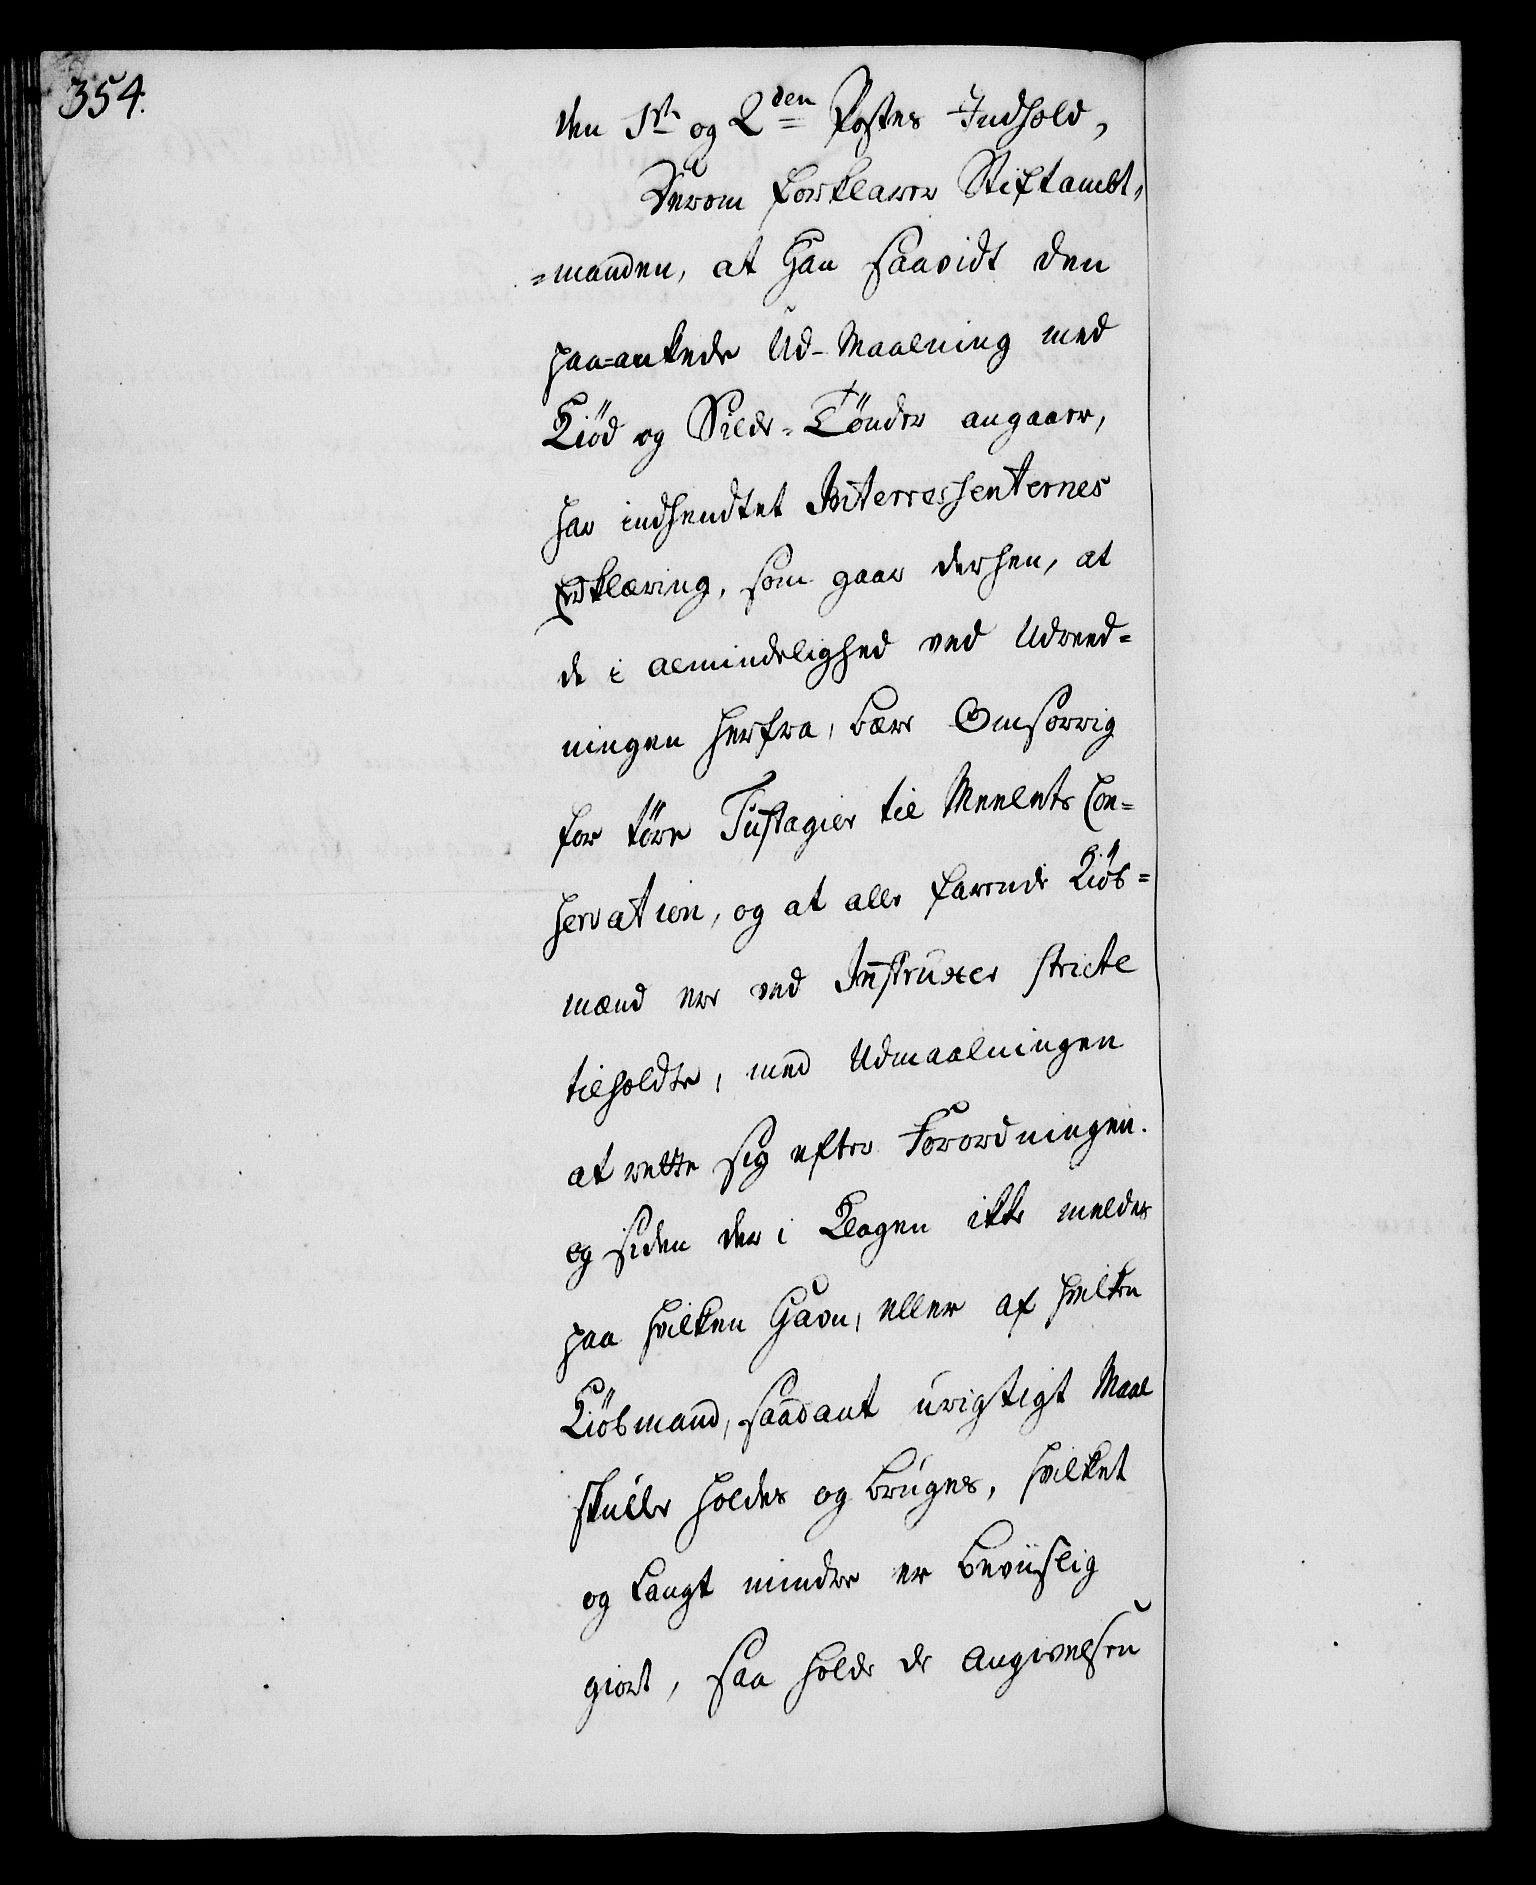 354.
den 1ste og 2den Postes Indhold,
Derom forklarer Stiftambt-
=manden, at han saavidt den
paa=ankede Ud-Maalning med
Kiød og Silde=Tønder angaaer,
har indhendtet Interressenternes
Erklæring, som gaar derhen, at
de i Almindelighed ved Udreed=
ningen herfra, bære Omsorrig
for tørre Fustagier til Meelets Con=
servation, og at alle farende Kiøb=
mænd ere ved Instruxer stricte
tilholdte, med Udmaalningen
at rette sig efter Forordningen.
og siden der i Klagen ikke meldes
paa hvilken Havn, eller af hvilken
Kiøbmand, saadant urigtigt Maal
skulle holdes og bruges, hvilket
og langt mindre er beviislig
giort, saa holde de Angivelsen